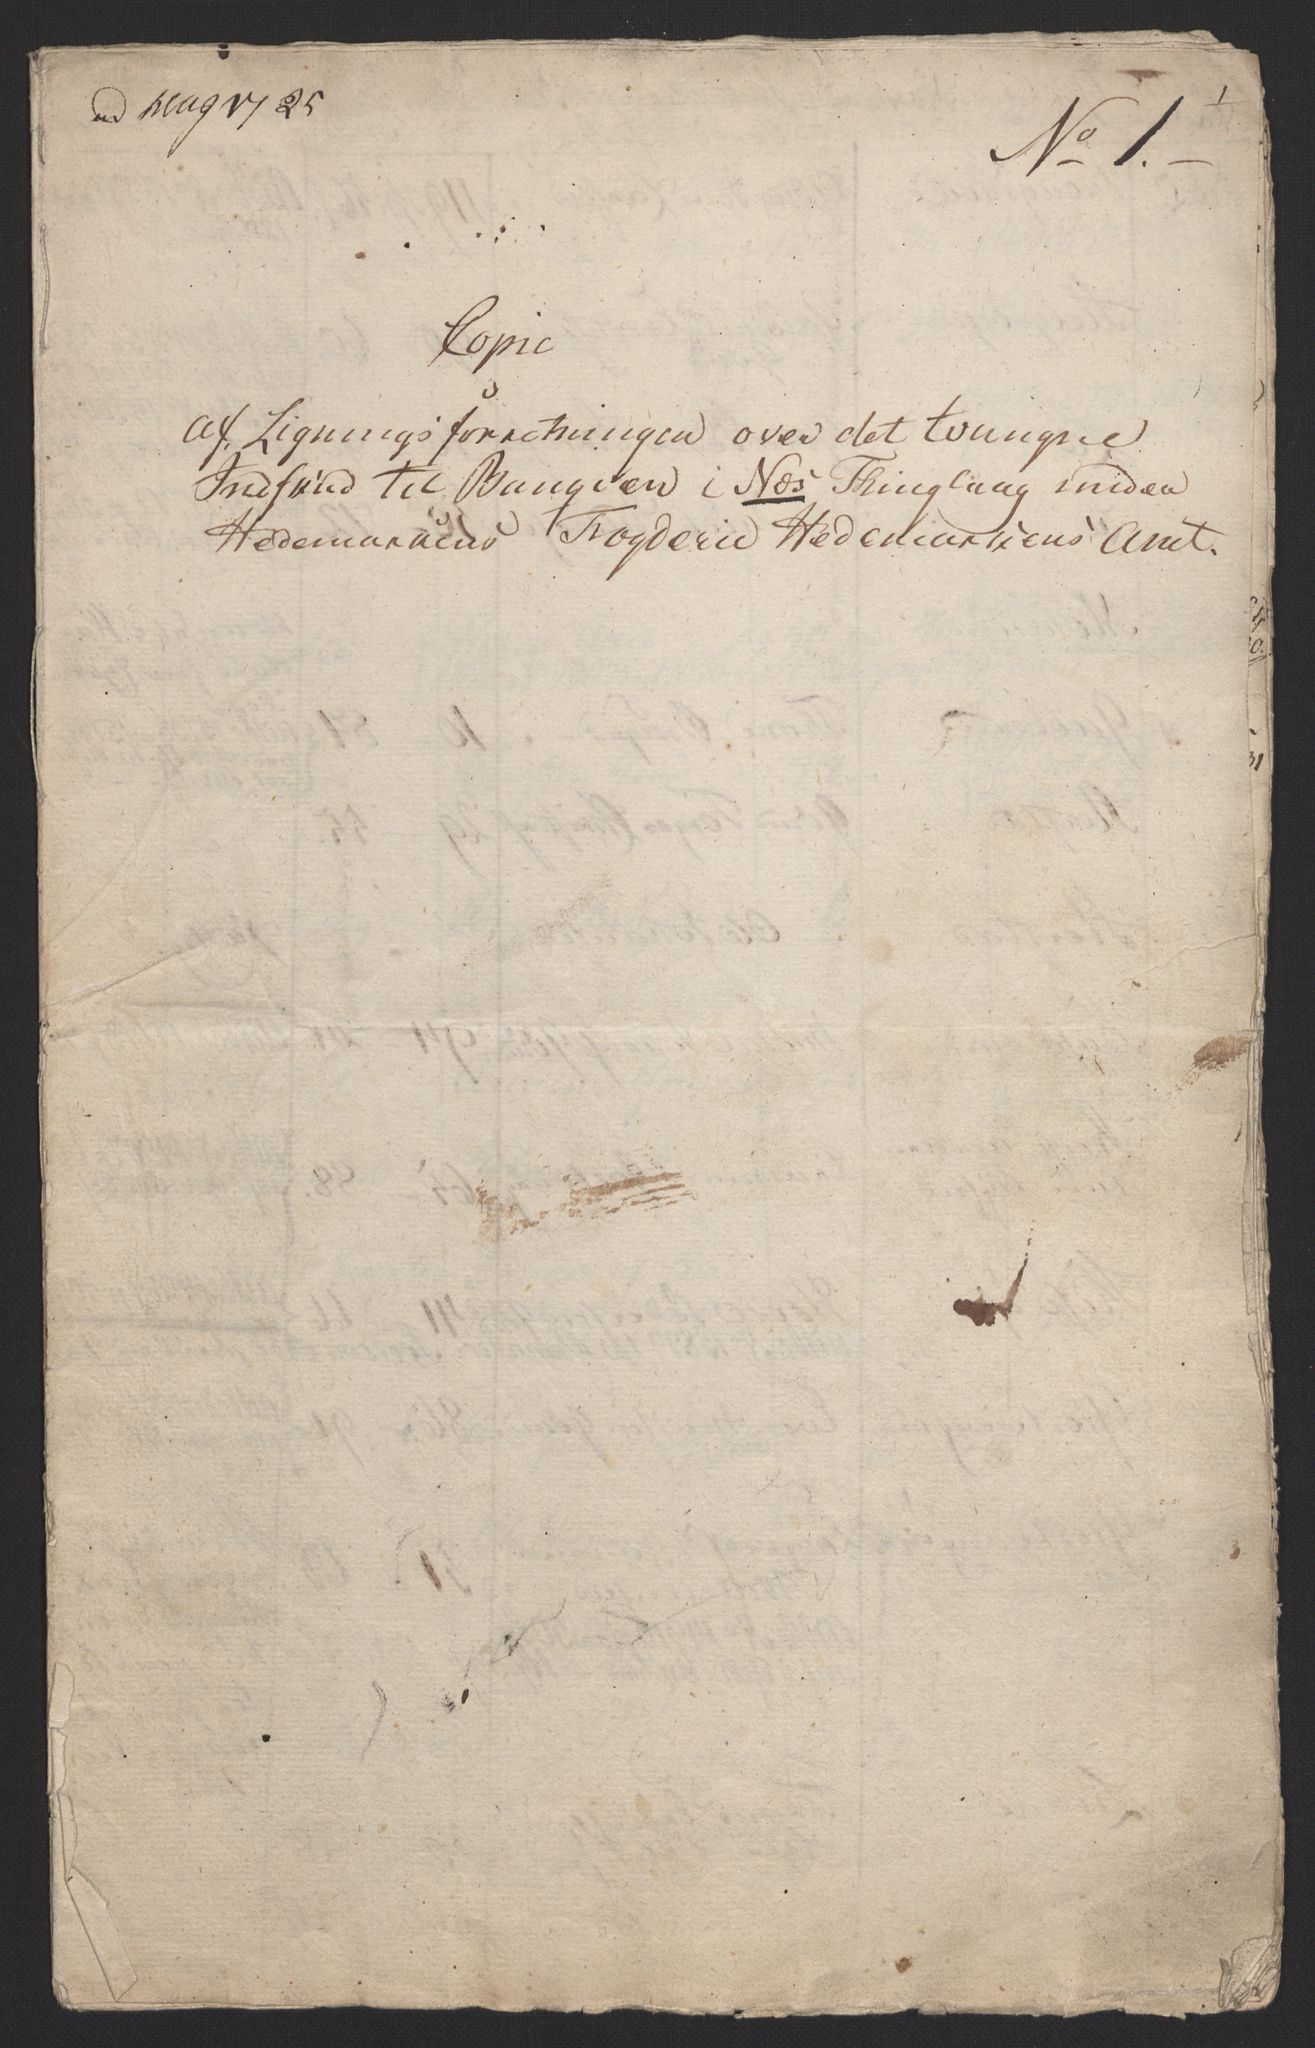 No 1.
1
Copie
af Ligningsforretningen over det tvungne
Indskud til Banqven i Næs Thinglaug inden
Hedemarkens Fogderie Hedemarkens Amt.